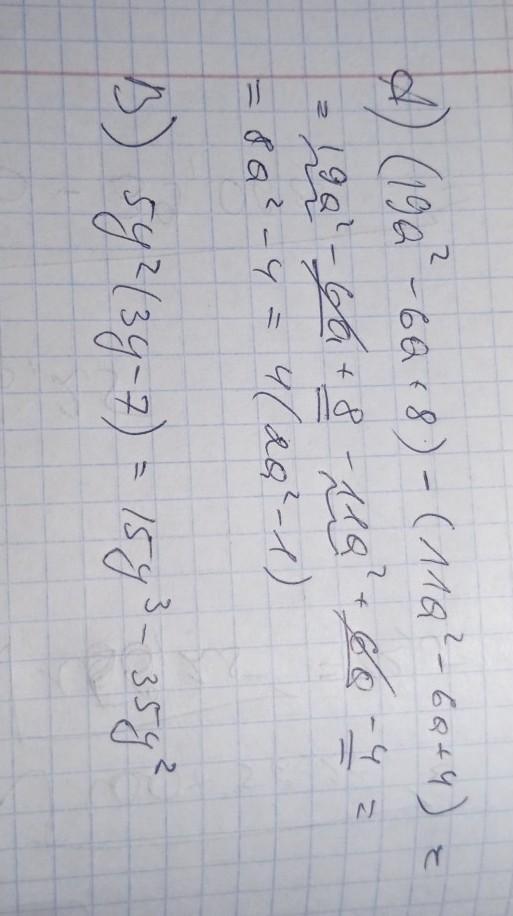 А) (19a² - 6a + 8) - (11a² - 6a + 4) =
= 19a² - 6a + 8 - 11a² + 6a - 4 =
= 8a² - 4 = 4(2a² - 1)
В) 5y²(3y - 7) = 15y³ - 35y²